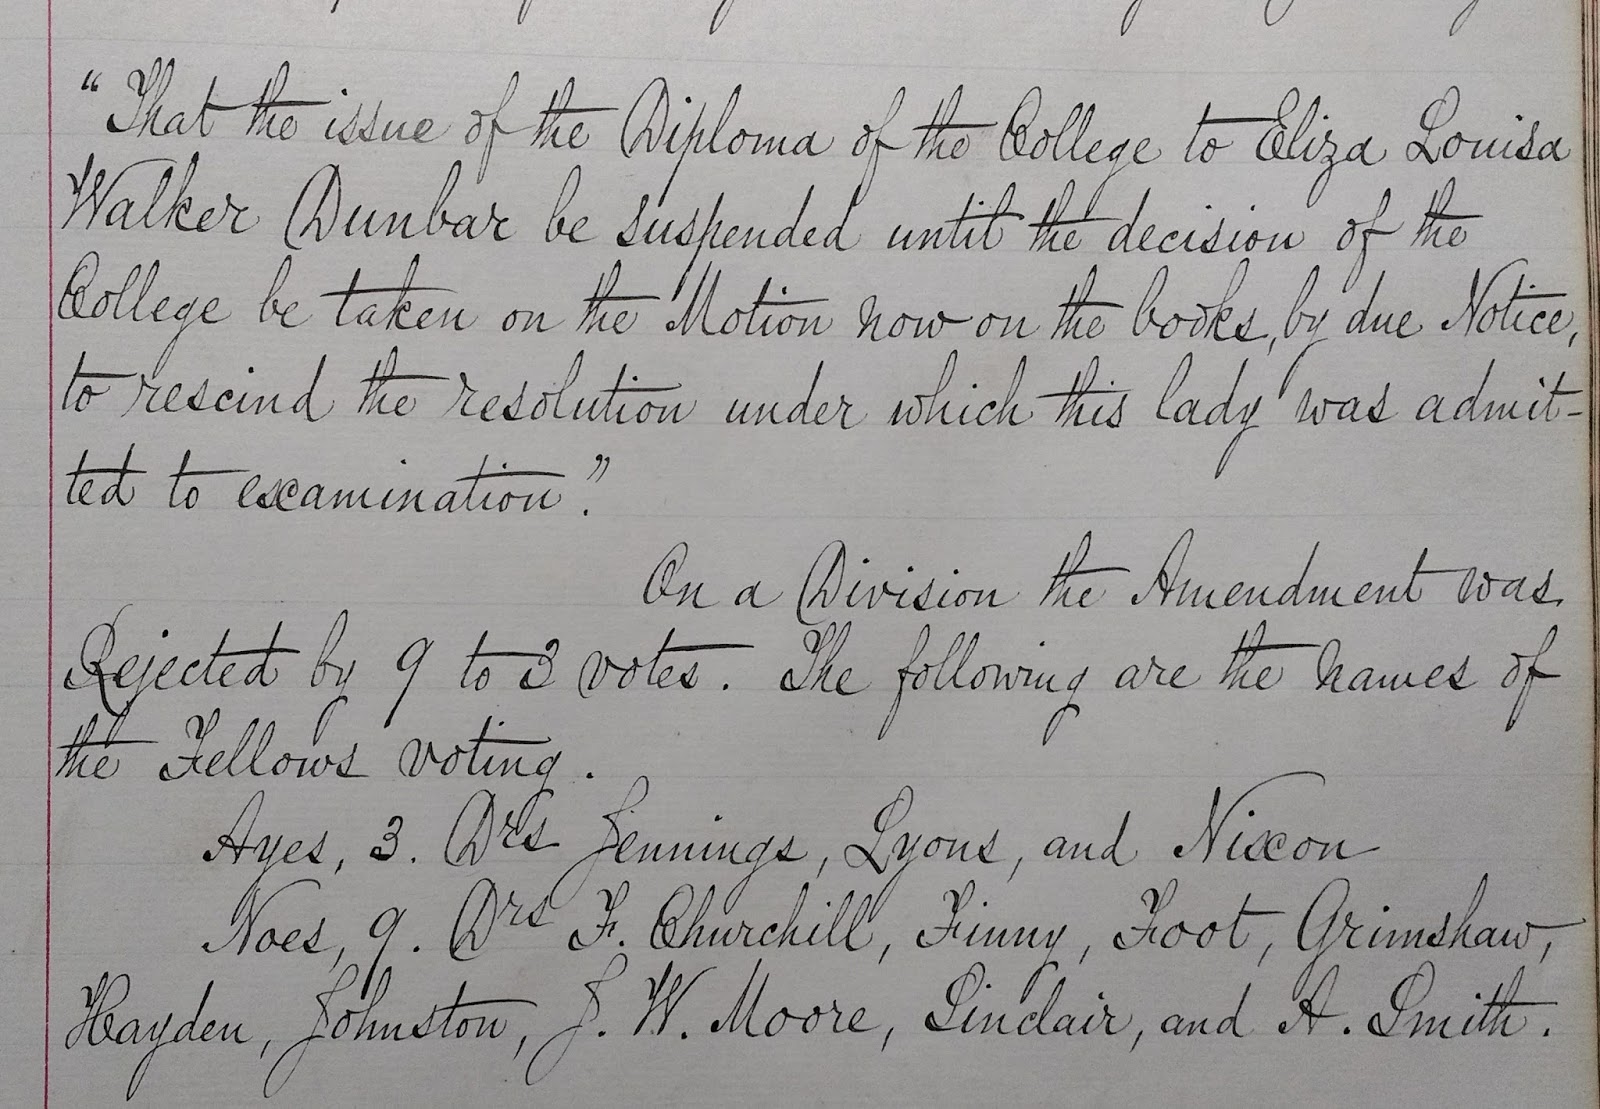 "That the issue of the Diploma of the College to Eliza Louisa
Walker Dunbar be suspended until the decision of the
College be taken on the Motion now on the books, by due Notice,
to rescind the resolution under which this lady was admit-
ted to examination."
On a Division the Amendment was
Rejected by 9 to 3 votes. The following are the names of
the Fellows voting.
Ayes, 3. Drs Jennings, Lyons, and Nixon
Noes, 9. Drs F. Churchill, Finny, Foot, Grimshaw,
Hayden, Johnston, J. W. Moore, Sinclair, and A. Smith.